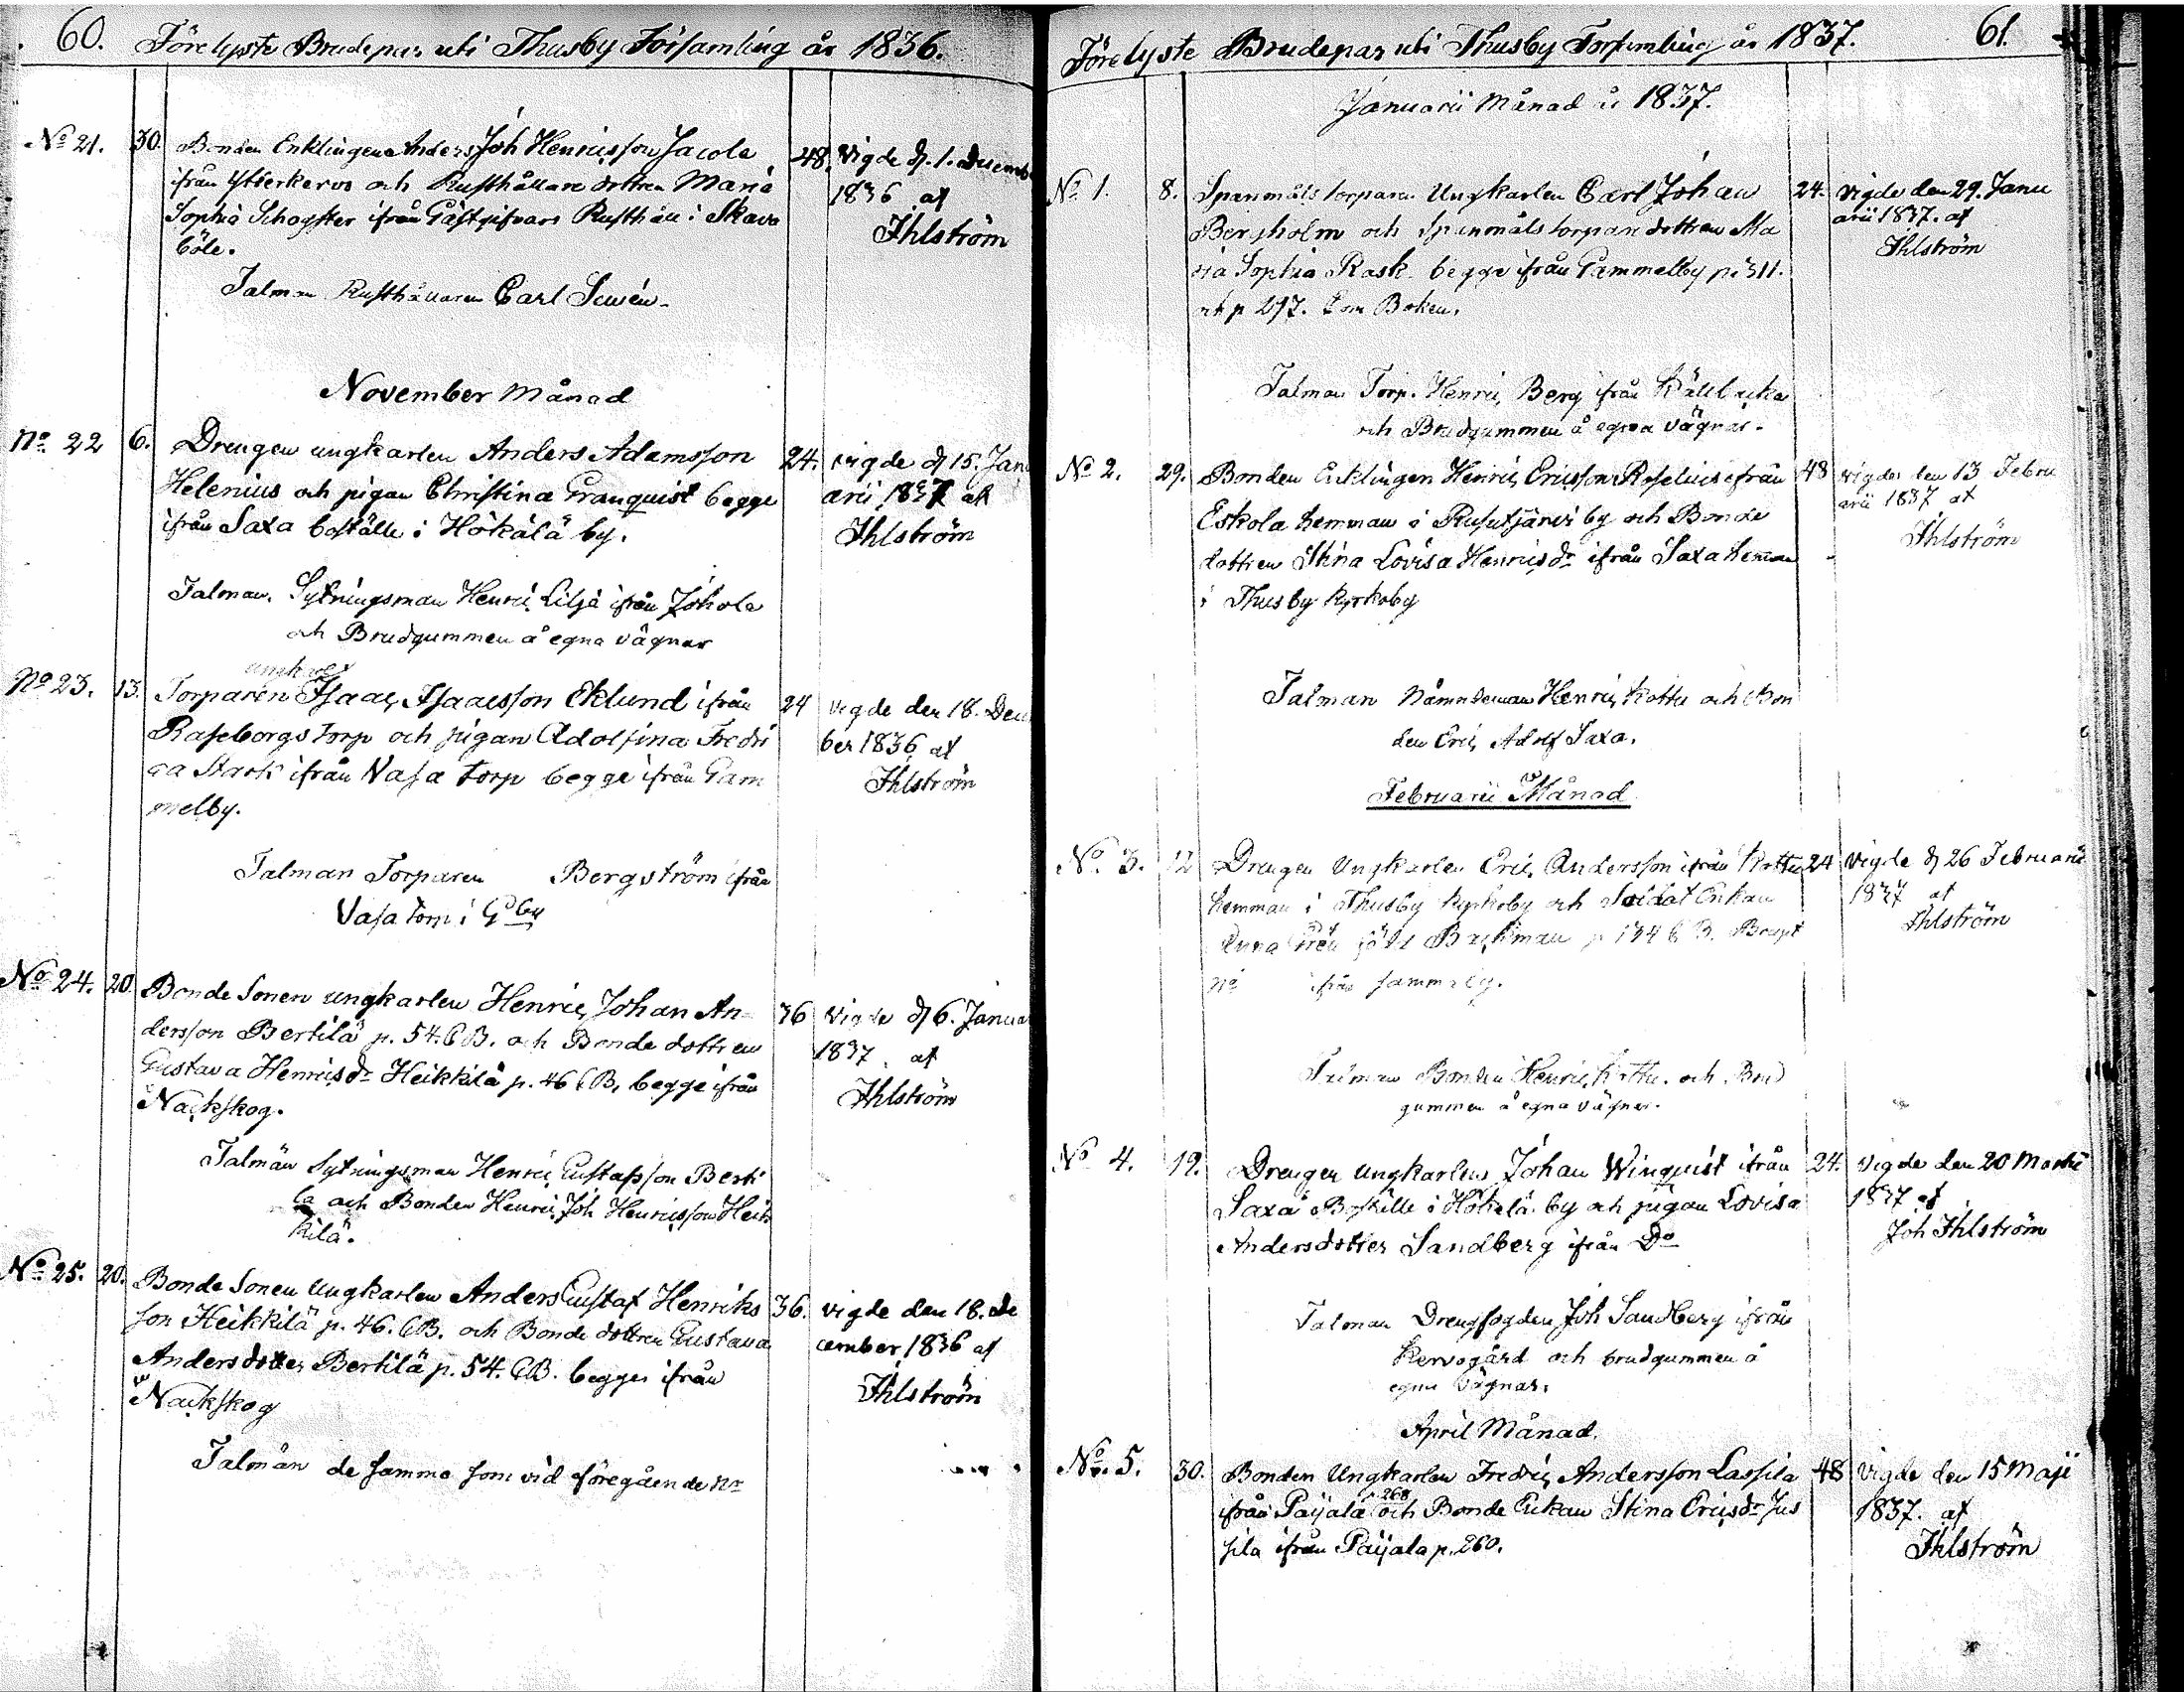 60. Förelyste Brudepar uti Thusby Församling år 1836.
No 21. 30. Bonden Enklingen Anders Joh Henricsson Jacola 48. Vigde d. 1. Decemb
ifrån Ytterkervo och Rusthållare dottren Maria 1836 af
Sophia Schogster ifrån Gästgifvars Rusthåll i Skava Ihlström
böle.
Talman Rusthållaren Carl
November Månad
No 22 6. Drengen ungkarlen Anders Adamsson 24. vigde d 15. Janu
Helenius och pigan Christina Granquist begge arii 1837 af
ifrån Saxa boställe i Hökälä by. Ihlström
Talman. Sytningsman Henric Lilja ifrån Johola
och Brudgummen å egna vägnar
ungkarl
No 23. 13. Torparen Isaac Isaacsson Eklund ifrån 24 vigde den 18. Decem
Raseborgs torp och pigan Adolfina Fredri ber 1836 af
ca Stark ifrån Vasa torp begge ifrån Gam Ihlström
melby.
Talman Torparen Bergström ifrån
Vasa torp i Gby
No 24. 20. Bonde Sonen ungkarlen Henric Johan An- 36 Vigde d 6. Janua
dersson Bertilä p. 54. CB. och Bonde dottren 1837. af
Gustava Henricsdr Heikkilä p. 46 CB, begge ifrån Ihlström
Nackskog.
Talmän Sytningsman Henric Gustafsson Berti
la och Bonden Henric Joh Henricsson Heik
kilä.
No 25. 20. Bonde Sonen Ungkarlen Anders Gustaf Henriks 36. vigde den 18. De
son Heikkilä p. 46. CB. och Bonde dottren Gustava cember 1836 af
Andersdotter Bertilä p. 54. CB. begge ifrån Ihlström
Nackskog
Talmän de samma som vid föregående Nr
Förelyste Brudepar uti Thusby Församling år 1837. 61.
Januarii Månad år 1837.
No 1. 8. Spanmåls torparen Ungkarlen Carl Johan 24. Vigde den 29. Janu
Bergholm och Spanmåls torpare dottren Ma arii 1837. af
ria Sophia Rask begge ifrån Gammelby p. 311. Ihlström
och p 297. Com Boken.
Talman Torp. Henric Berg ifrån Källbacka
och Brudgummen å egna vägnar.
No 2. 29. Bonden Enklingen Henric Ericsson Roselius ifrån 48 vigdes den 13 Febru
Eskola hemman i Rusutjärvi by och Bonde arii 1837 af
dottren Stina Lovisa Henricsdr ifrån Saxa hemman Ihlström
i Thusby Kyrkoby
Talman Nämndeman Henric Kottu och Bon
den Eric Adolf Saxa.
Februarii Månad
No 3. 12 Drengen Ungkarlen Eric Andersson ifrån Kottu 24 Vigde d 26 Februarii
hemman i Thusby Kyrkoby och Soldat Enkan 1837 af
Anna född Backman p 134 C B. Ihlström
ifrån samma by.
Talman Bonden Henric Kottu. och Brud
gummen å egna vägnar.
No 4. 19. Drengen ungkarlen Johan Winquist ifrån 24. Vigde den 20 Martii
Saxa Boställe i Hökelä by och pigan Lovisa 1837 af
Andersdotter Sandberg ifrån Do Joh Ihlström
Talman Drengfogden Joh Sandberg ifrån
Kervogård och brudgummen å
egna vägnar.
April Månad.
No. 5. 30. Bonden Ungkarlen Fredric Andersson Lassila 48 Vigde den 15 Maji
p 268
ifrån Paijala och Bonde Enkan Stina Ericsdr Jus 1837. af
sila ifrån Paijala p. 260. Ihlström